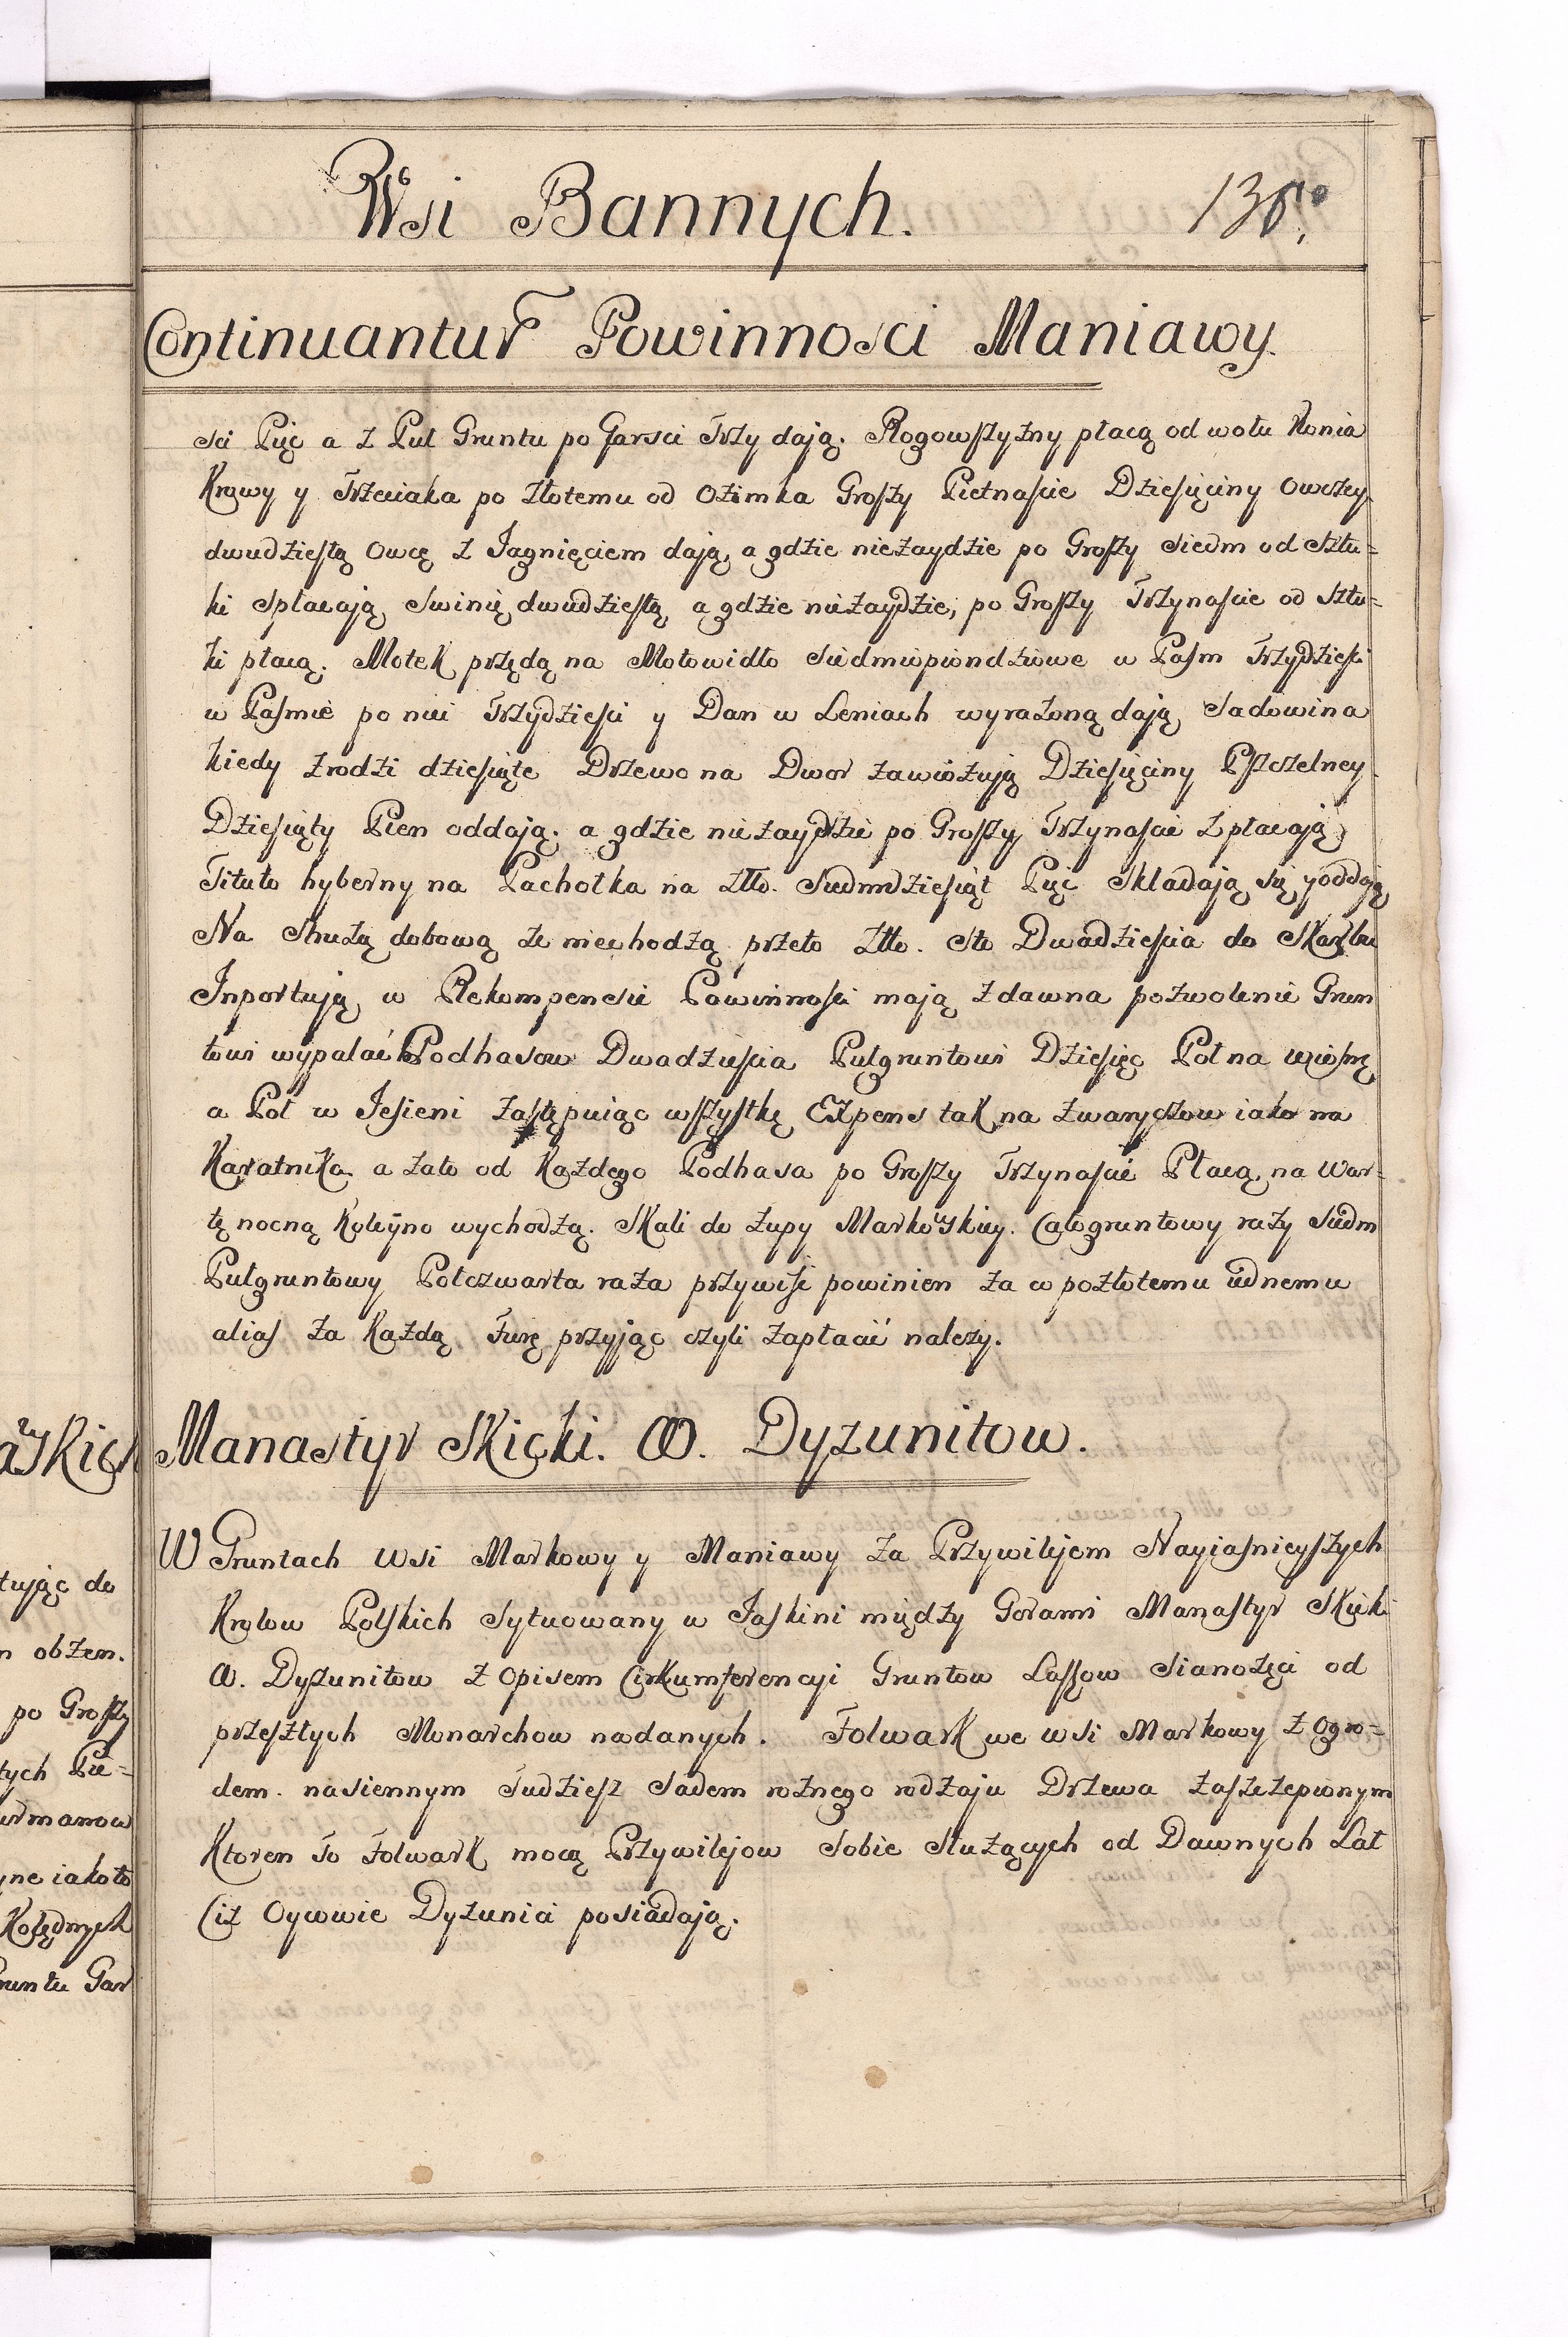 Wsi Bannych.
Continuantur Powinnosci Maniawy.
sci Pię a z Puł Gruntu po Garsci Trzy dają. Rogowszyzny płacą od wołu Konia
Krowy y Trzeciaka po złotemu od Ozimka Groszy Pietnascie Dziesięciny Owczey
dwudziestą Owcę z Iagnięciem dają, a gdzie niezaydzie po Groszy siedm od Sztu=
ki spłacają Swinię dwudziestą a gdzie niezaydzie, po Groszy Trzynascie od Sztu=
ki płacą. Motek przędą na Motowidło siedmiopiendziowe w Pasm Trzydziesci
w Pasmie po nici Trzydziesci y Dan w Leniach wyrazoną dają, Sadowina
kiedy zrodzi dziesiąte Drzewo na Dwor zawiązują Dziesięciny Pszczelney
Dziesiąty Pien oddają. a gdzie niezaydzie po Groszy Trzynascie zpłacają
Titulo hyberny na Pachołka na Złło. Siedmdziesiąt Pięc Składają się y oddają
Na Strużą dobową ze niechodzą przeto Złło. Sto Dwadziescia do Skarbu
Inportują w Rekompensie Powinnosci mają zdawna pozwolenie Grun
towi wypalać Podhasow Dwadziescia Pułgruntowi Dziesięc Poł na wiosnę
a Poł w Iesieni zastępuiąc wszystkę Expens tak na zwaryczow iako na
Karatnika a zato od Kazdego Podhasa po Groszy Trzynascie Płacą, na War=
tę nocną Koleyno wychodzą. Skali do żupy Markowskiey. Całogruntowy razy siedm
Pułgruntowy Połczwarta raza przywiść powinien za co pozłotemu iednemu
alias za Kazdą Furę przyjąc czyli zapłacić nalezy.
Manastyr Skicki. OO. Dyzunitow.
W Gruntach Wsi Markowy y Maniawy za Przywilejem Nayiasnieyszych
Krolow Polskich sytuowany w Iaskini między Gorami Manastyr Skicki
OO. Dyzunitow z Opisem Cirkumferencyi Gruntow Lassow sianozęci od
przeszłych Monarchow nadanych. Folwark we wsi Markowy z Ogro=
dem. nasiennym Tudziesz Sadem roznego rodzaju Drzewa zaszczepionym
Ktoren To Folwark mocą Przywilejow Sobie Służących od Dawnych Lat
Ciz Oycowie Dyzunici posiadają.